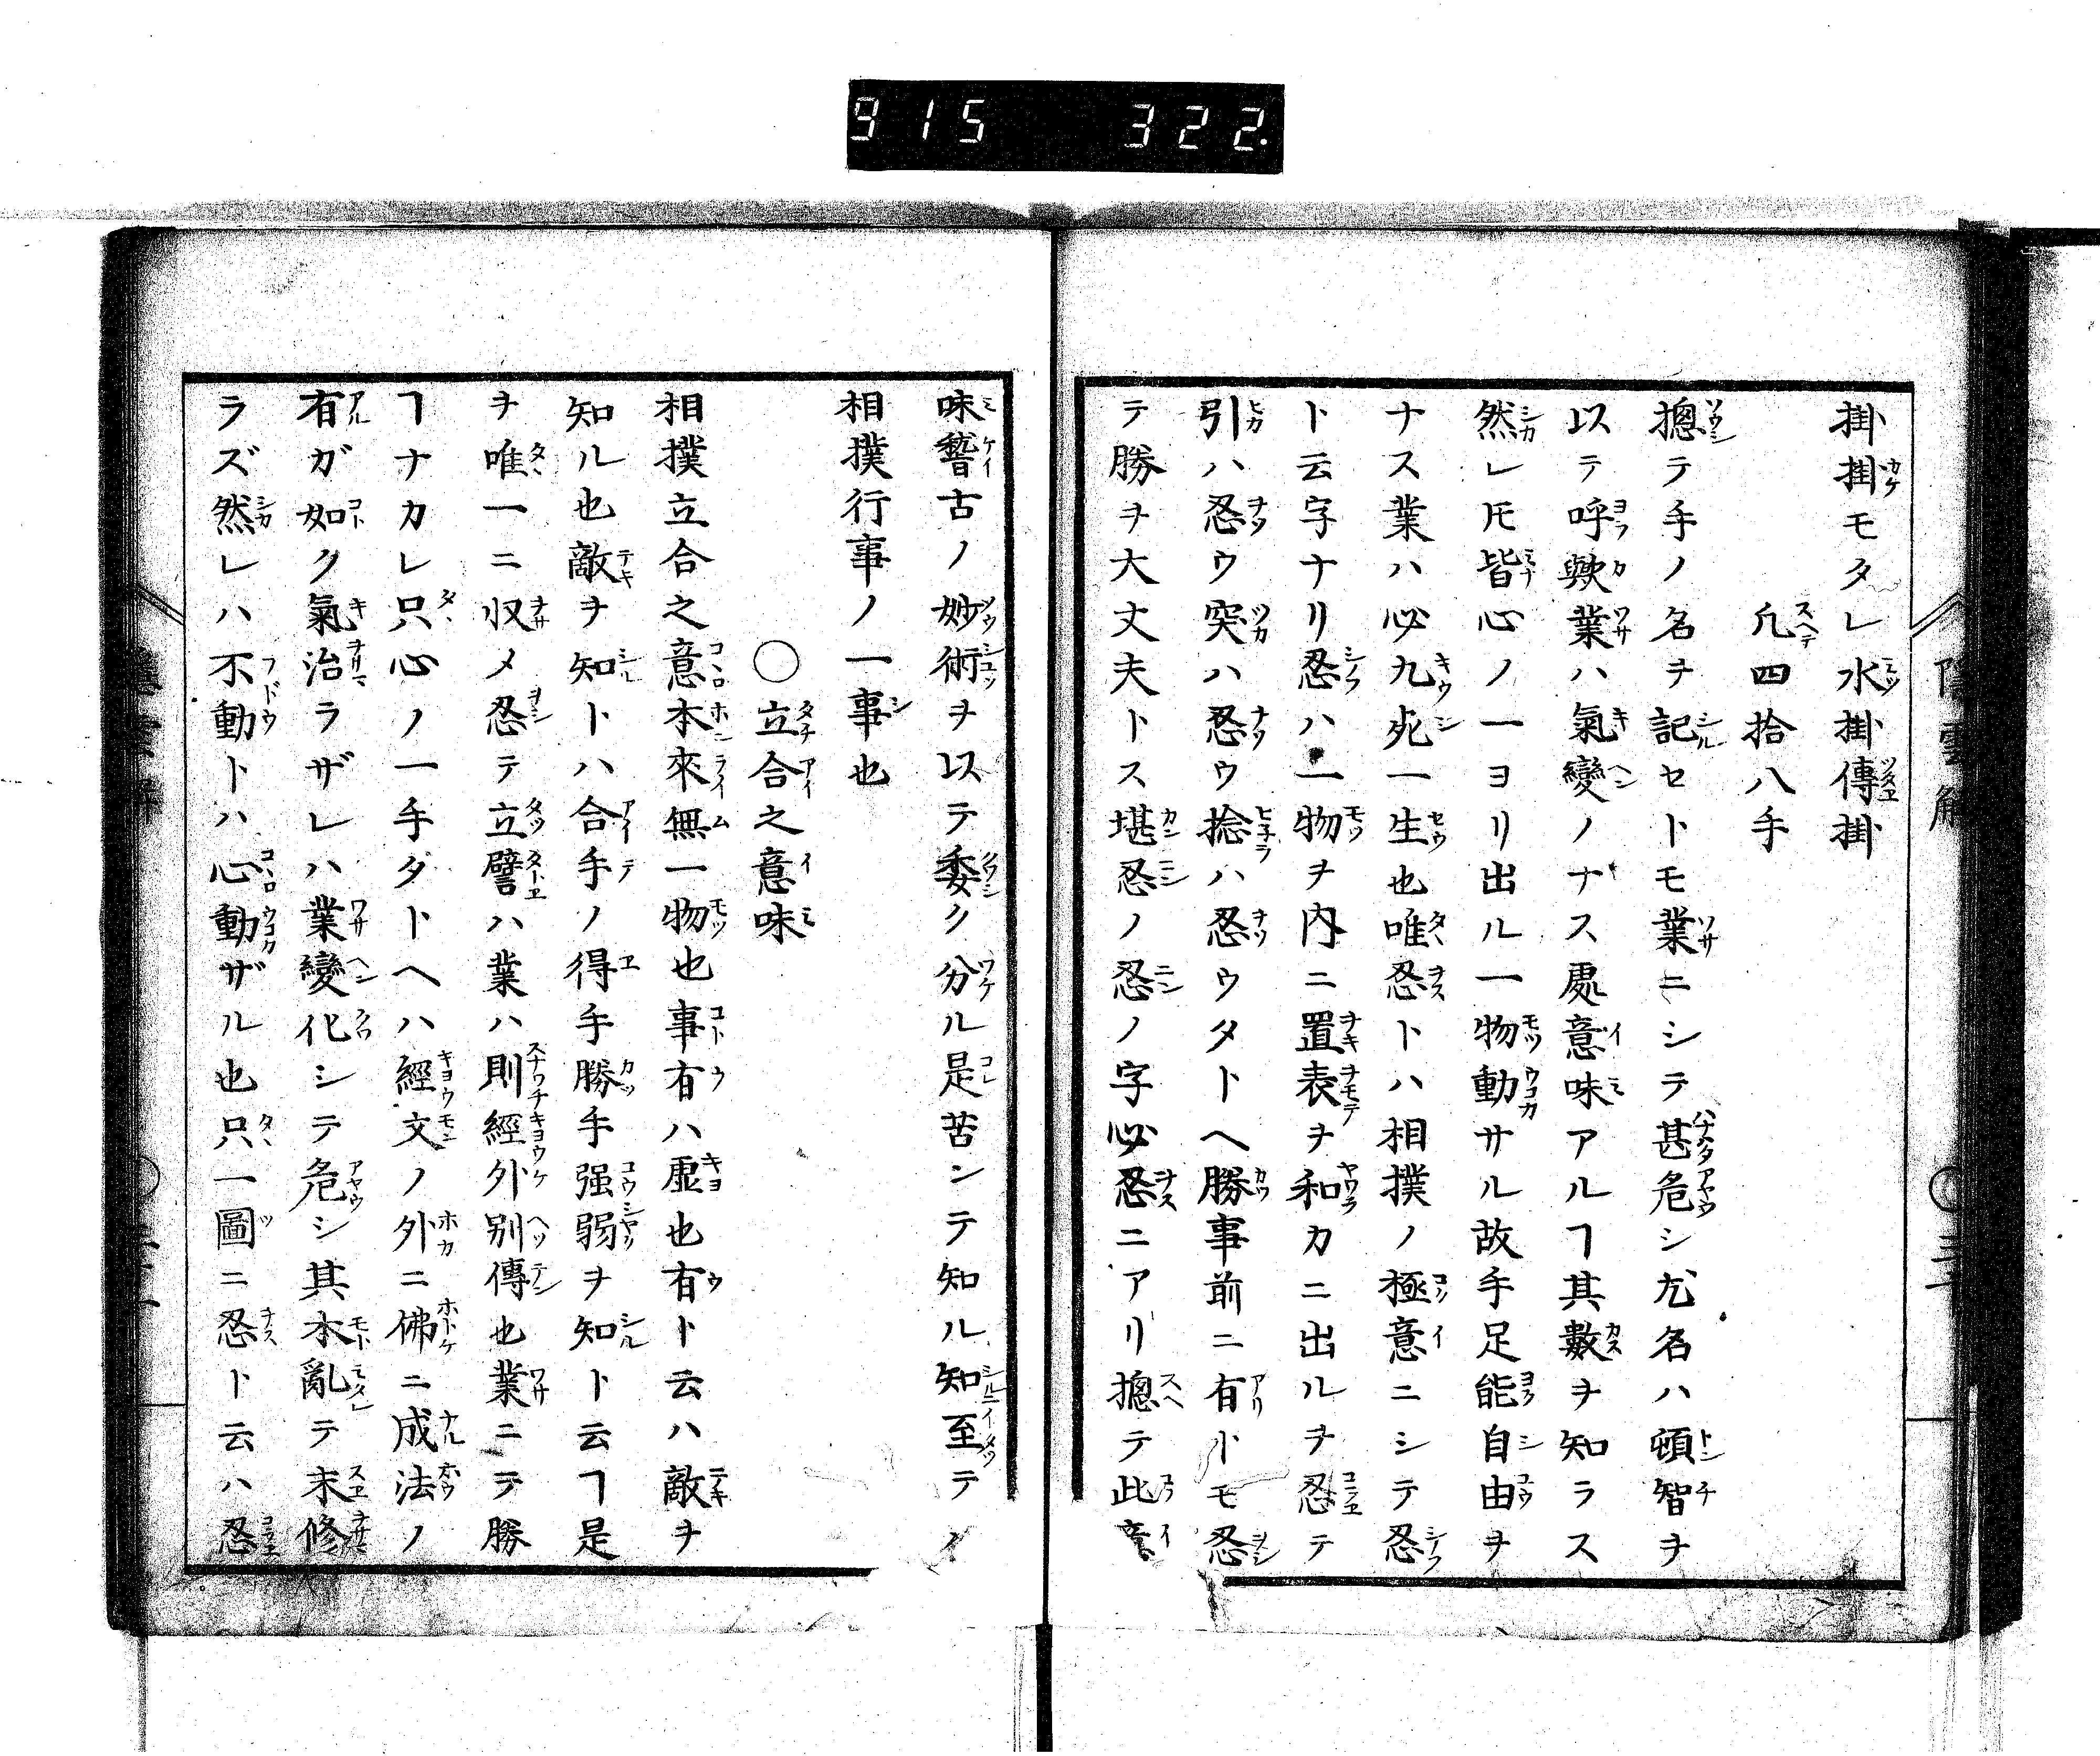 915 322.
掛掛モタレ水掛傳掛
凢四拾八手
摠テ手ノ名ヲ記セトモ業ニシテ甚危シ尤名ハ頓智ヲ
以テ呼歟業ハ氣變ノナス處意味アルヿ其數ヲ知ラス
然レ𪜈皆心ノ一ヨリ出ル一物動サル故手足能自由ヲ
ナス業ハ必九死一生也唯忍トハ相撲ノ極意ニシテ忍
ト云字ナリ忍ハ一物ヲ内ニ置表ヲ和カニ出ルヲ忍テ
引ハ忍ウ突ハ忍ウ捻ハ忍ウタトヘ勝事前ニ有トモ忍
テ勝ヲ大丈夫トス堪忍ノ忍ノ字必忍ニアリ摠テ此意
味稽古ノ妙術ヲ以テ委ク分ル是苦ンテ知ル知至テノ
相撲行事ノ一事也
○立合之意味
相撲立合之意本來無一物也事有ハ虚也有ト云ハ敵ヲ
知ル也敵ヲ知トハ合手ノ得手勝手强弱ヲ知ト云ヿ是
ヲ唯一ニ収メ忍テ立譬ハ業ハ則經外別傳也業ニテ勝
ヿナカレ只心ノ一手ダトヘハ經文ノ外ニ佛ニ成法ノ
有ガ如ク氣治ラザレハ業變化シテ危シ其本亂テ末修
ラズ然レハ不動トハ心動ザル也只一圖ニ忍ト云ハ忍